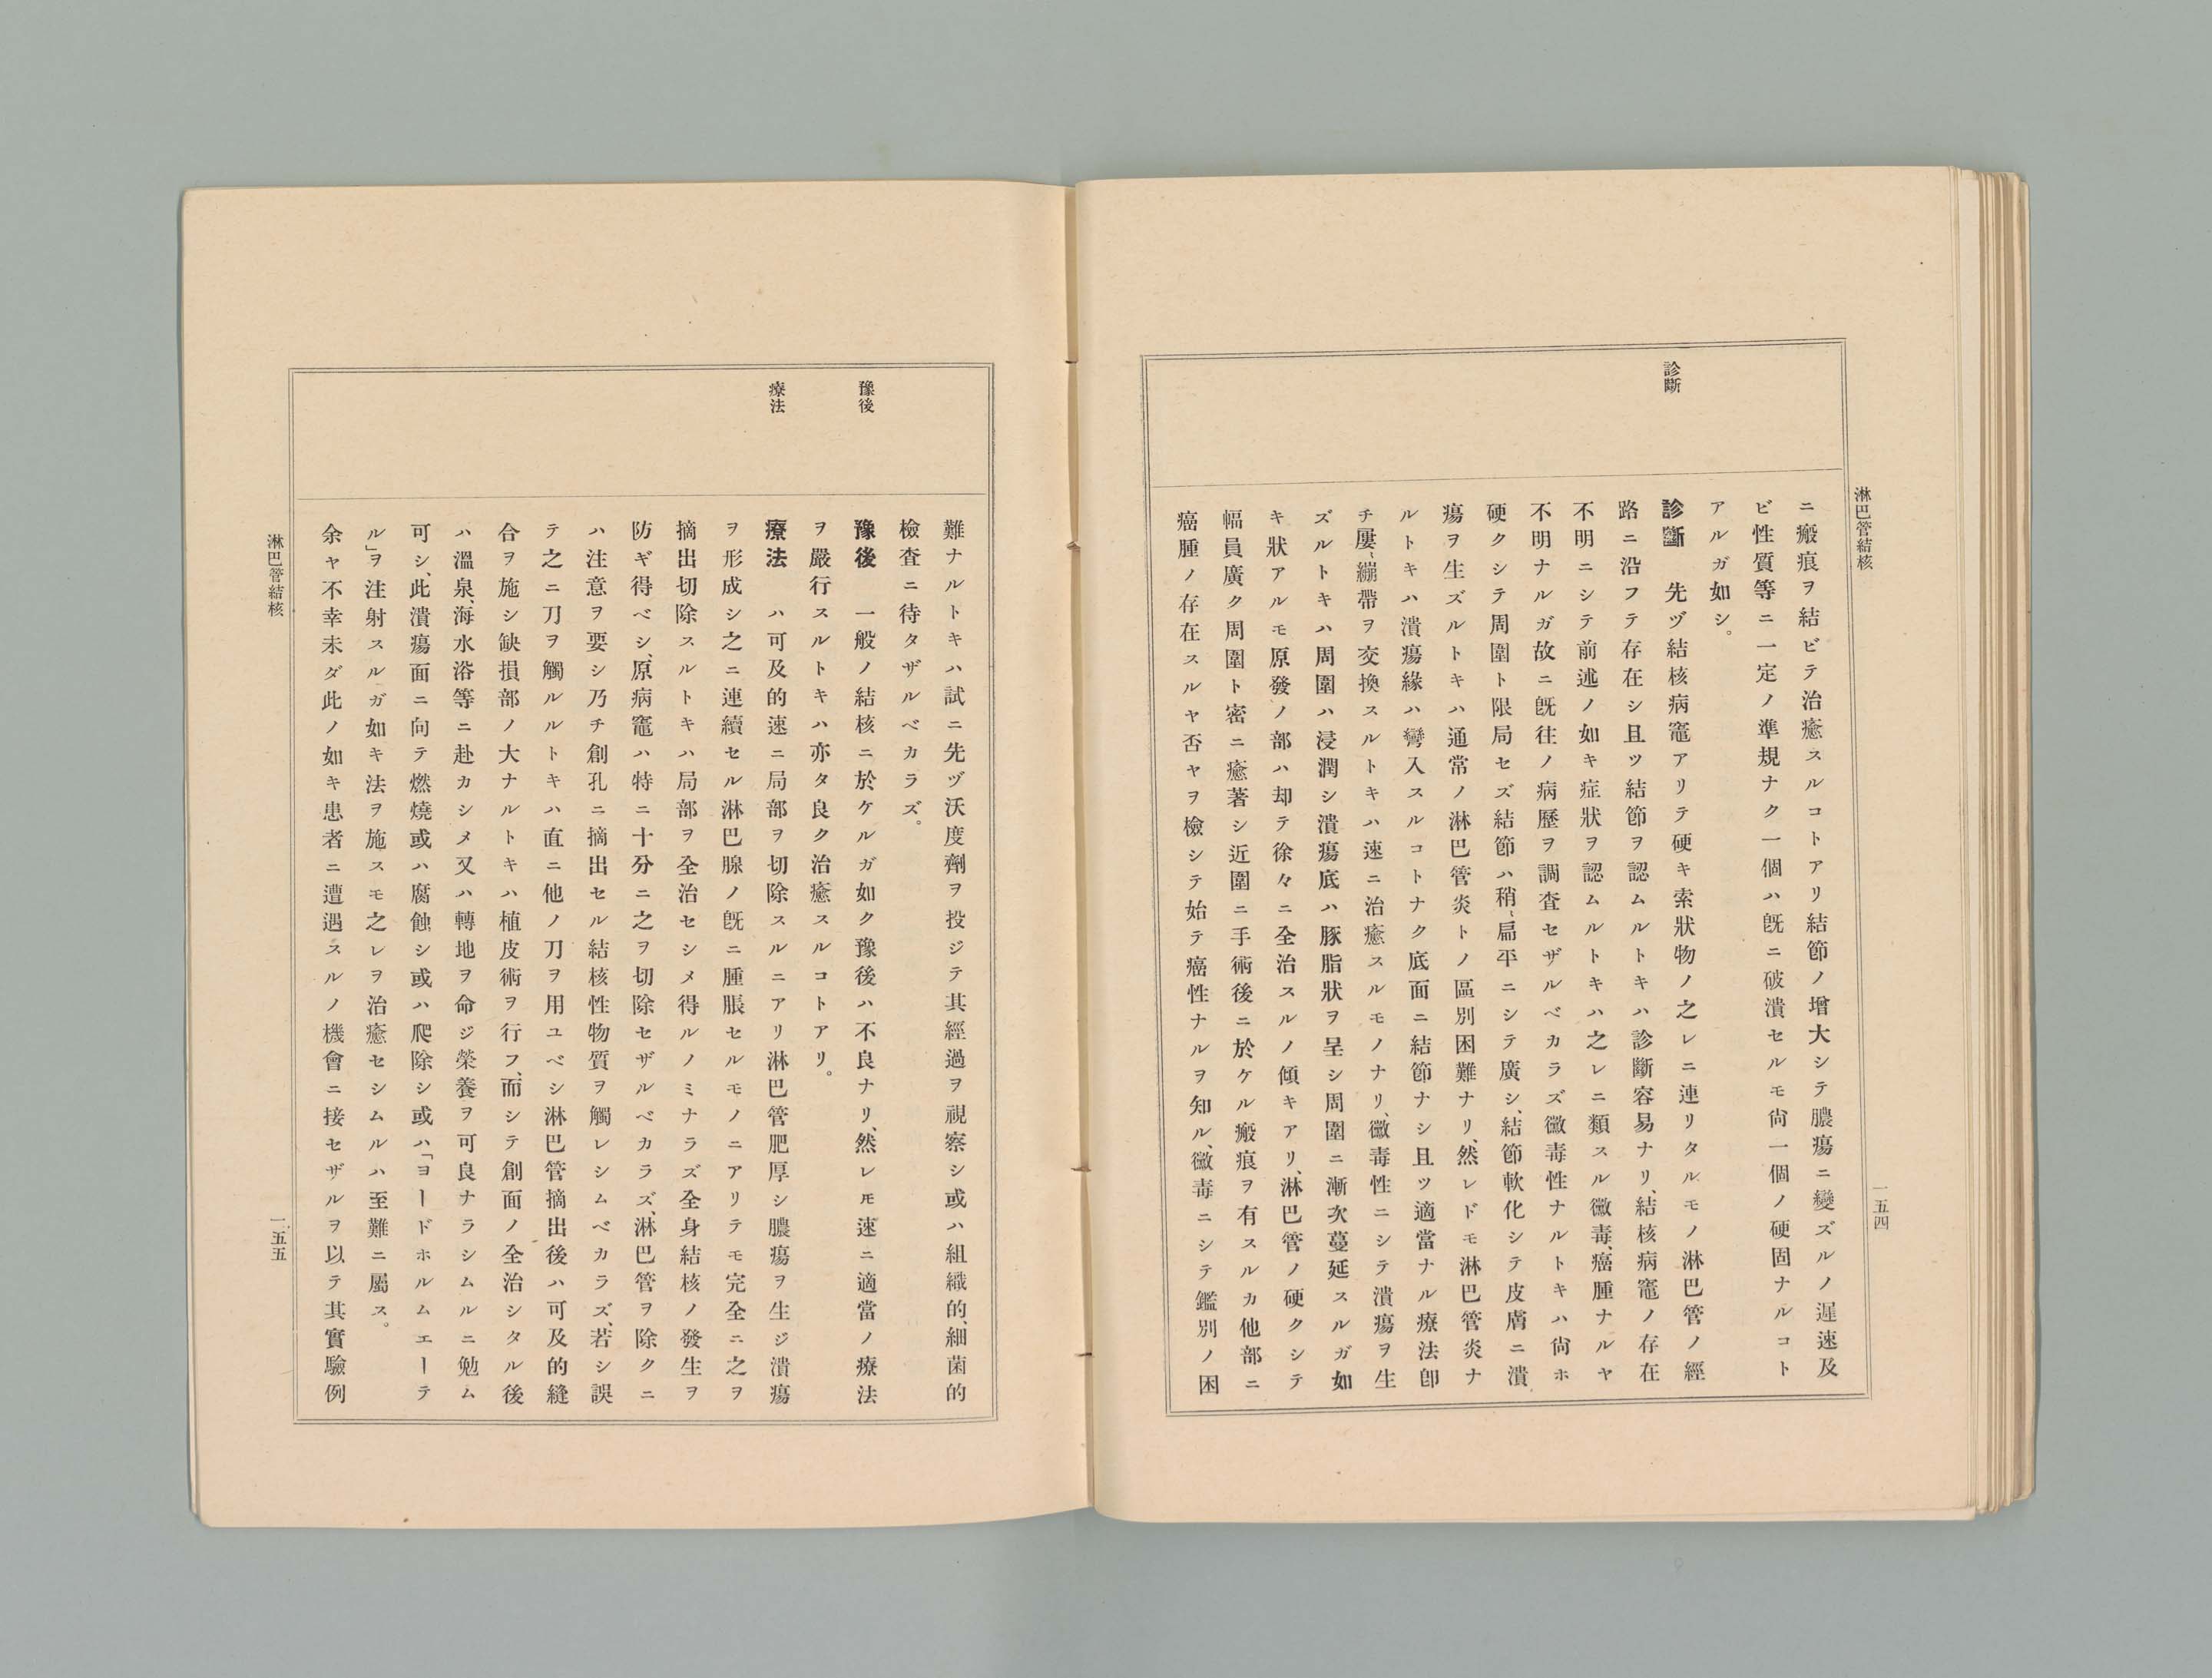 淋巴管結核
一五四
診斷
ニ瘢痕ヲ結ビテ治癒スルコトアリ結節ノ增大シテ膿瘍ニ變ズルノ遲速及
ビ性質等ニ一定ノ準規ナク一個ハ旣ニ破潰セルモ尙一個ノ硬固ナルコト
アルガ如シ。
診斷 先ヅ結核病竈アリテ硬キ索狀物ノ之レニ連リタルモノ淋巴管ノ經
路ニ沿フテ存在シ且ツ結節ヲ認ムルトキハ診斷容易ナリ、結核病竈ノ存在
不明ニシテ前述ノ如キ症狀ヲ認ムルトキハ之レニ類スル黴毒、癌腫ナルヤ
不明ナルガ故ニ旣往ノ病歷ヲ調査セザルベカラズ黴毒性ナルトキハ尙ホ
硬クシテ周圍ト限局セズ結節ハ稍〻扁平ニシテ廣シ、結節軟化シテ皮膚ニ潰
瘍ヲ生ズルトキハ通常ノ淋巴管炎トノ區別困難ナリ、然レドモ淋巴管炎ナ
ルトキハ潰瘍緣ハ彎入スルコトナク底面ニ結節ナシ且ツ適當ナル療法卽
チ屢〻繃帶ヲ交換スルトキハ速ニ治癒スルモノナリ、黴毒性ニシテ潰瘍ヲ生
ズルトキハ周圍ハ浸潤シ潰瘍底ハ豚脂狀ヲ呈シ周圍ニ漸次蔓延スルガ如
キ狀アルモ原發ノ部ハ却テ徐々ニ全治スルノ傾キアリ、淋巴管ノ硬クシテ
幅員廣ク周圍ト密ニ癒著シ近圍ニ手術後ニ於ケル瘢痕ヲ有スルカ他部ニ
癌腫ノ存在スルヤ否ヤヲ檢シテ始テ癌性ナルヲ知ル、黴毒ニシテ鑑別ノ困
豫後
療法
難ナルトキハ試ニ先ヅ沃度劑ヲ投ジテ其經過ヲ視察シ或ハ組織的、細菌的
檢査ニ待タザルベカラズ。
豫後 一般ノ結核ニ於ケルガ如ク豫後ハ不良ナリ、然レモ速ニ適當ノ療法
ヲ嚴行スルトキハ亦タ良ク治癒スルコトアリ。
療法 ハ可及的速ニ局部ヲ切除スルニアリ淋巴管肥厚シ膿瘍ヲ生ジ潰瘍
ヲ形成シ之ニ連續セル淋巴腺ノ旣ニ腫脹セルモノニアリテモ完全ニ之ヲ
摘出切除スルトキハ局部ヲ全治セシメ得ルノミナラズ全身結核ノ發生ヲ
防ギ得ベシ、原病竈ハ特ニ十分ニ之ヲ切除セザルベカラズ、淋巴管ヲ除クニ
ハ注意ヲ要シ乃チ創孔ニ摘出セル結核性物質ヲ觸レシムベカラズ、若シ誤
テ之ニ刀ヲ觸ルルトキハ直ニ他ノ刀ヲ用ユベシ淋巴管摘出後ハ可及的縫
合ヲ施シ缺損部ノ大ナルトキハ植皮術ヲ行フ、而シテ創面ノ全治シタル後
ハ溫泉、海水浴等ニ赴カシメ又ハ轉地ヲ命ジ榮養ヲ可良ナラシムルニ勉ム
可シ、此潰瘍面ニ向テ燃燒或ハ腐蝕シ或ハ爬除シ或ハ「ヨードホルムエーテ
ル」ヲ注射スルガ如キ法ヲ施スモ之レヲ治癒セシムルハ至難ニ屬ス。
余ヤ不幸未ダ此ノ如キ患者ニ遭遇スルノ機會ニ接セザルヲ以テ其實驗例
淋巴管結核
一五五